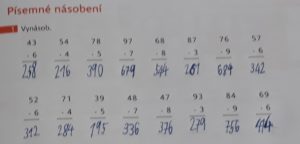 Písemné násobení
1 Vynásob.
43 54 78 97 68 87 76 57
· 6 · 4 · 5 · 7 · 8 · 3 · 9 · 6
258 216 390 679 544 261 684 342
52 71 39 48 47 93 84 69
· 6 · 4 · 5 · 7 · 8 · 3 · 9 · 6
312 284 195 336 376 279 756 414